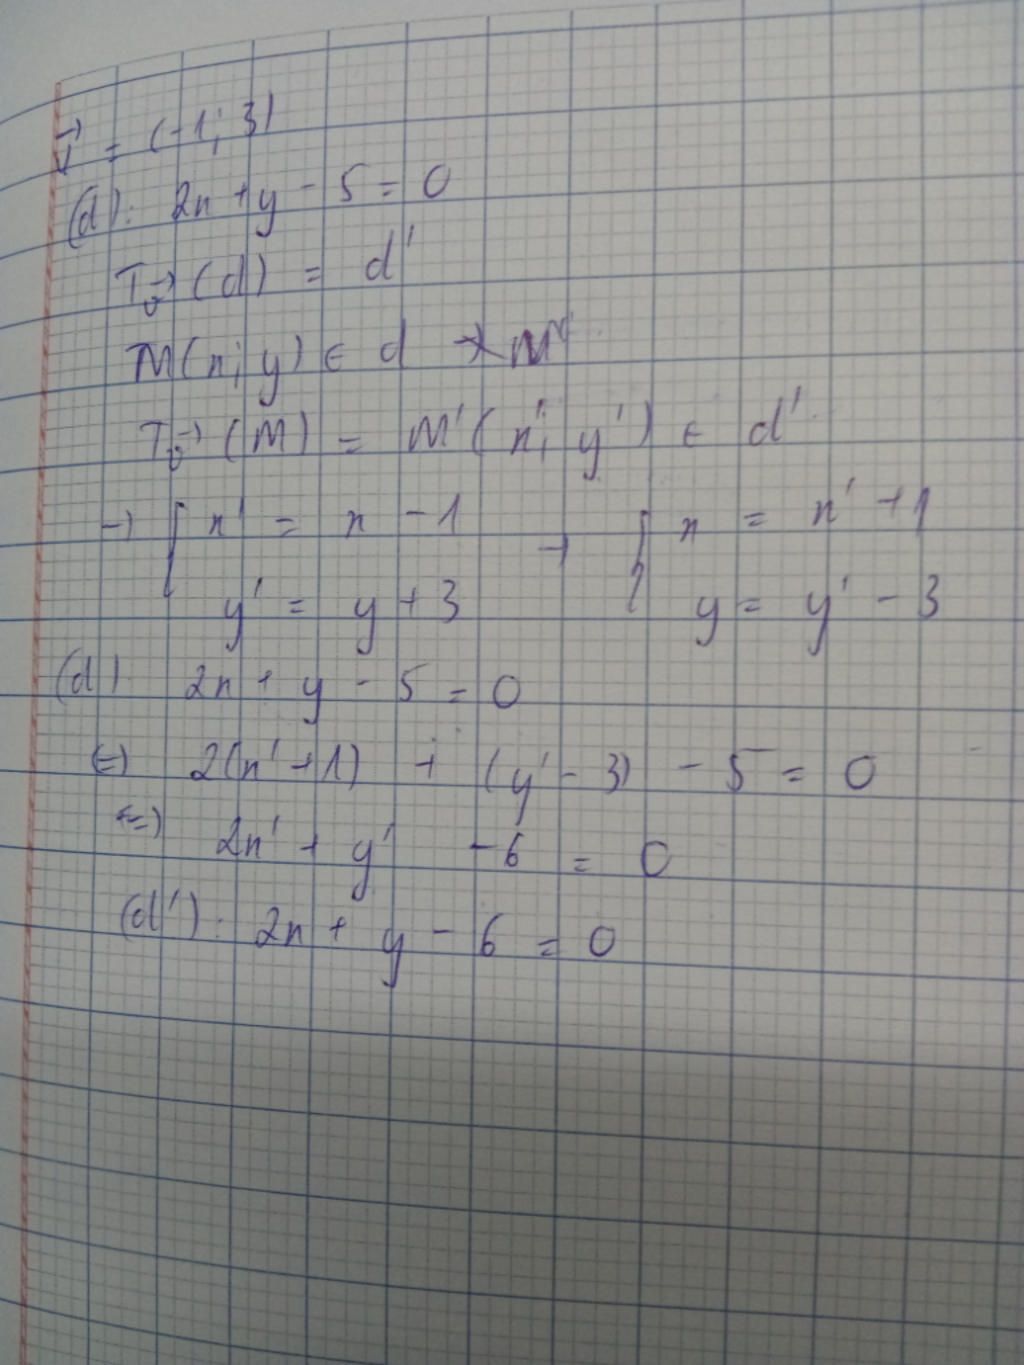 v⃗ = (-1; 3)
(d): 2x + y - 5 = 0
Tv⃗ (d) = d'
M(x; y) ∈ d
Tv⃗ (M) = M'(x'; y') ∈ d'
→ { x' = x - 1 → { x = x' + 1
y' = y + 3 y = y' - 3
(d) 2x + y - 5 = 0
(=) 2(x' + 1) + (y' - 3) - 5 = 0
(=) 2x' + y' - 6 = 0
(d'): 2x + y - 6 = 0